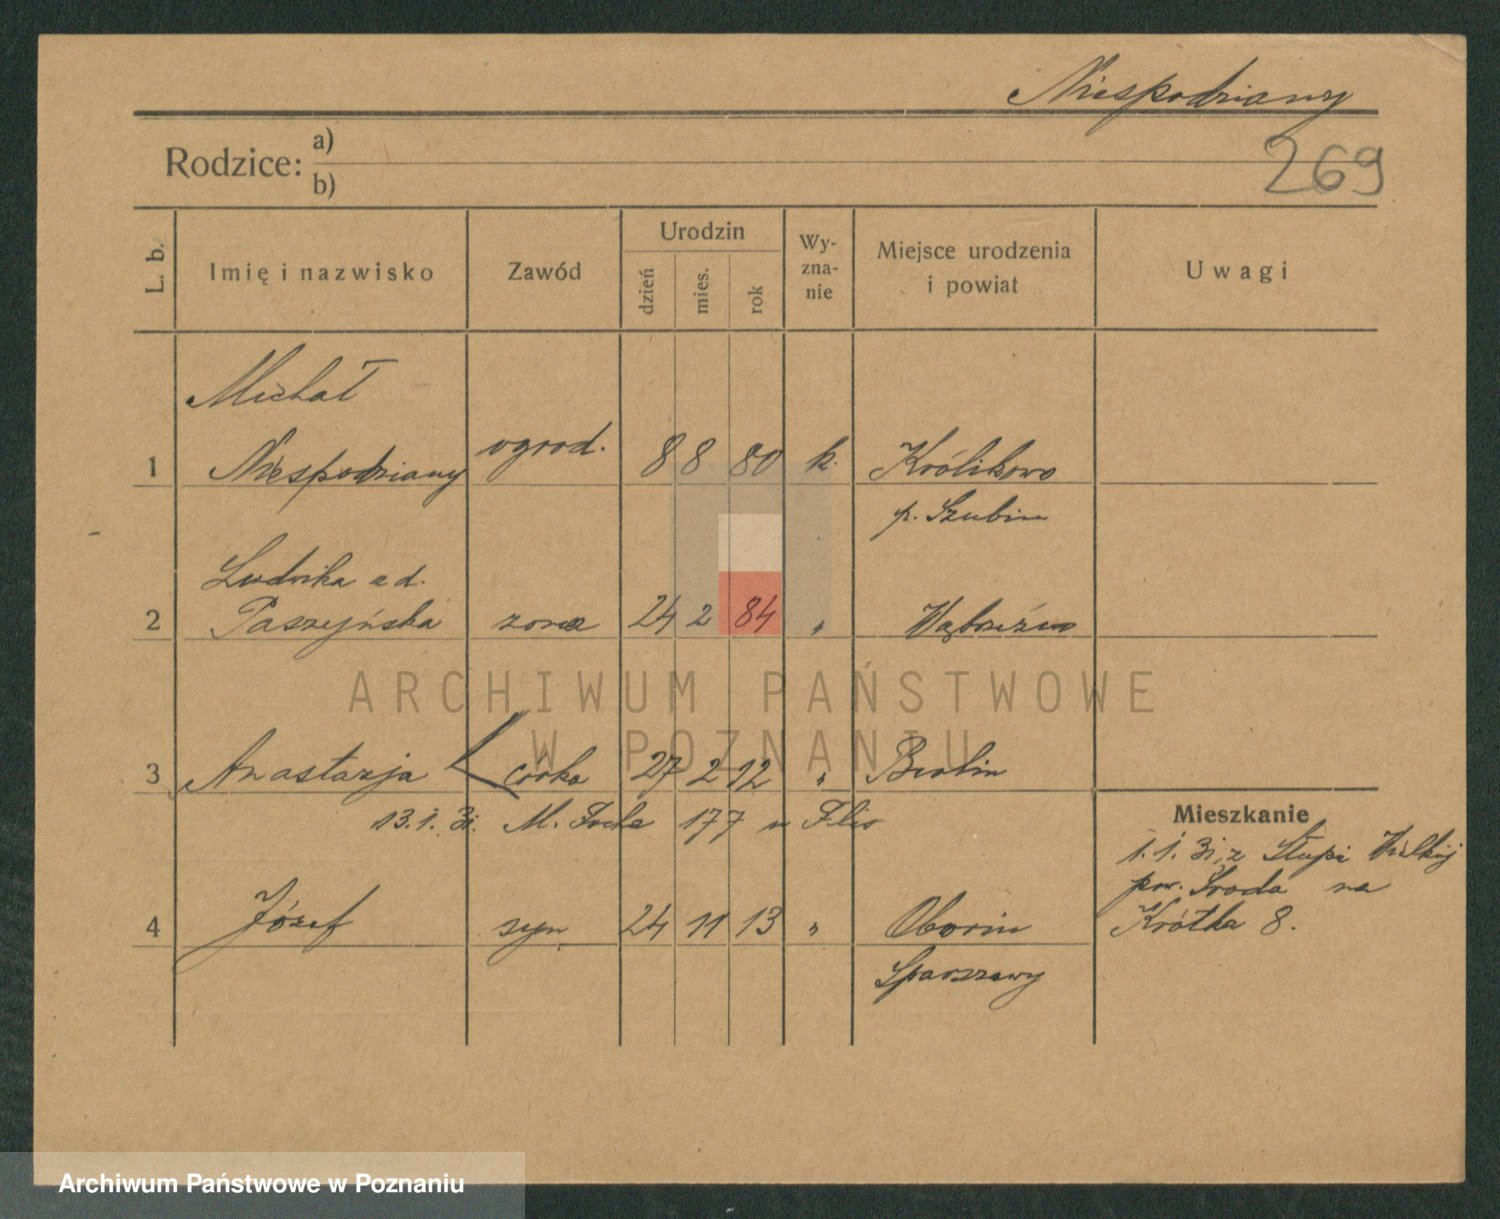 Niespodziany
269
Rodzice: a)
b)
L. b. Imię i nazwisko Zawód Urodzin dzień mies. rok Wy-zna-nie Miejsce urodzenia i powiat Uwagi
Michał
1 Niespodziany ogrod. 8 8 80 k. Królikowo
p. Szubin
Ludwika z d.
2 Paszyńska żona 24 2 84 " Wąbrzeźno
ARCHIWUM PAŃSTWOWE
W POZNANIU
3 Anastazja córka 27 2 12 " Berlin
13.1.31. M. Focha 177 u Flis
Mieszkanie
1.1.31. z Słupi Wielkiej
pow. Środa na
Krótka 8.
4 Józef syn 24 11 13 "
Archiwum Państwowe w Poznaniu